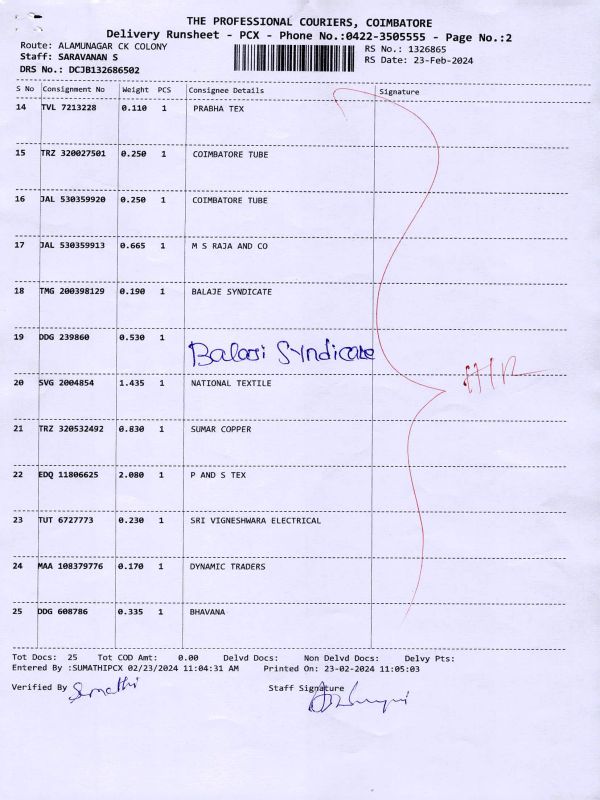 THE PROFESSIONAL COURIERS, COIMBATORE
Delivery Runsheet - PCX - Phone No.:0422-3505555 - Page No.:2
Route: ALAMUNAGAR CK COLONY
RS No.: 1326865
Staff: SARAVANAN S
RS Date: 23-Feb-2024
DRS No.: DCJB132686502
S No Consignment No Weight PCS Consignee Details Signature
14 TVL 7213228 0.110 1 PRABHA TEX
15 TRZ 320027501 0.250 1 COIMBATORE TUBE
16 JAL 530359920 0.250 1 COIMBATORE TUBE
17 JAL 530359913 0.665 1 M S RAJA AND CO
18 TMG 200398129 0.190 1 BALAJE SYNDICATE
19 DDG 239860 0.530 1
Balaji Syndicate
20 SVG 2004854 1.435 1 NATIONAL TEXTILE
21 TRZ 320532492 0.830 1 SUMAR COPPER
22 EDQ 11806625 2.080 1 P AND S TEX
23 TUT 6727773 0.230 1 SRI VIGNESHWARA ELECTRICAL
24 MAA 108379776 0.170 1 DYNAMIC TRADERS
25 DDG 608786 0.335 1 BHAVANA
Tot Docs: 25 Tot COD Amt: 0.00 Delvd Docs: Non Delvd Docs: Delvy Pts:
Entered By :SUMATHIPCX 02/23/2024 11:04:31 AM Printed On: 23-02-2024 11:05:03
Verified By Sumathi Staff Signature